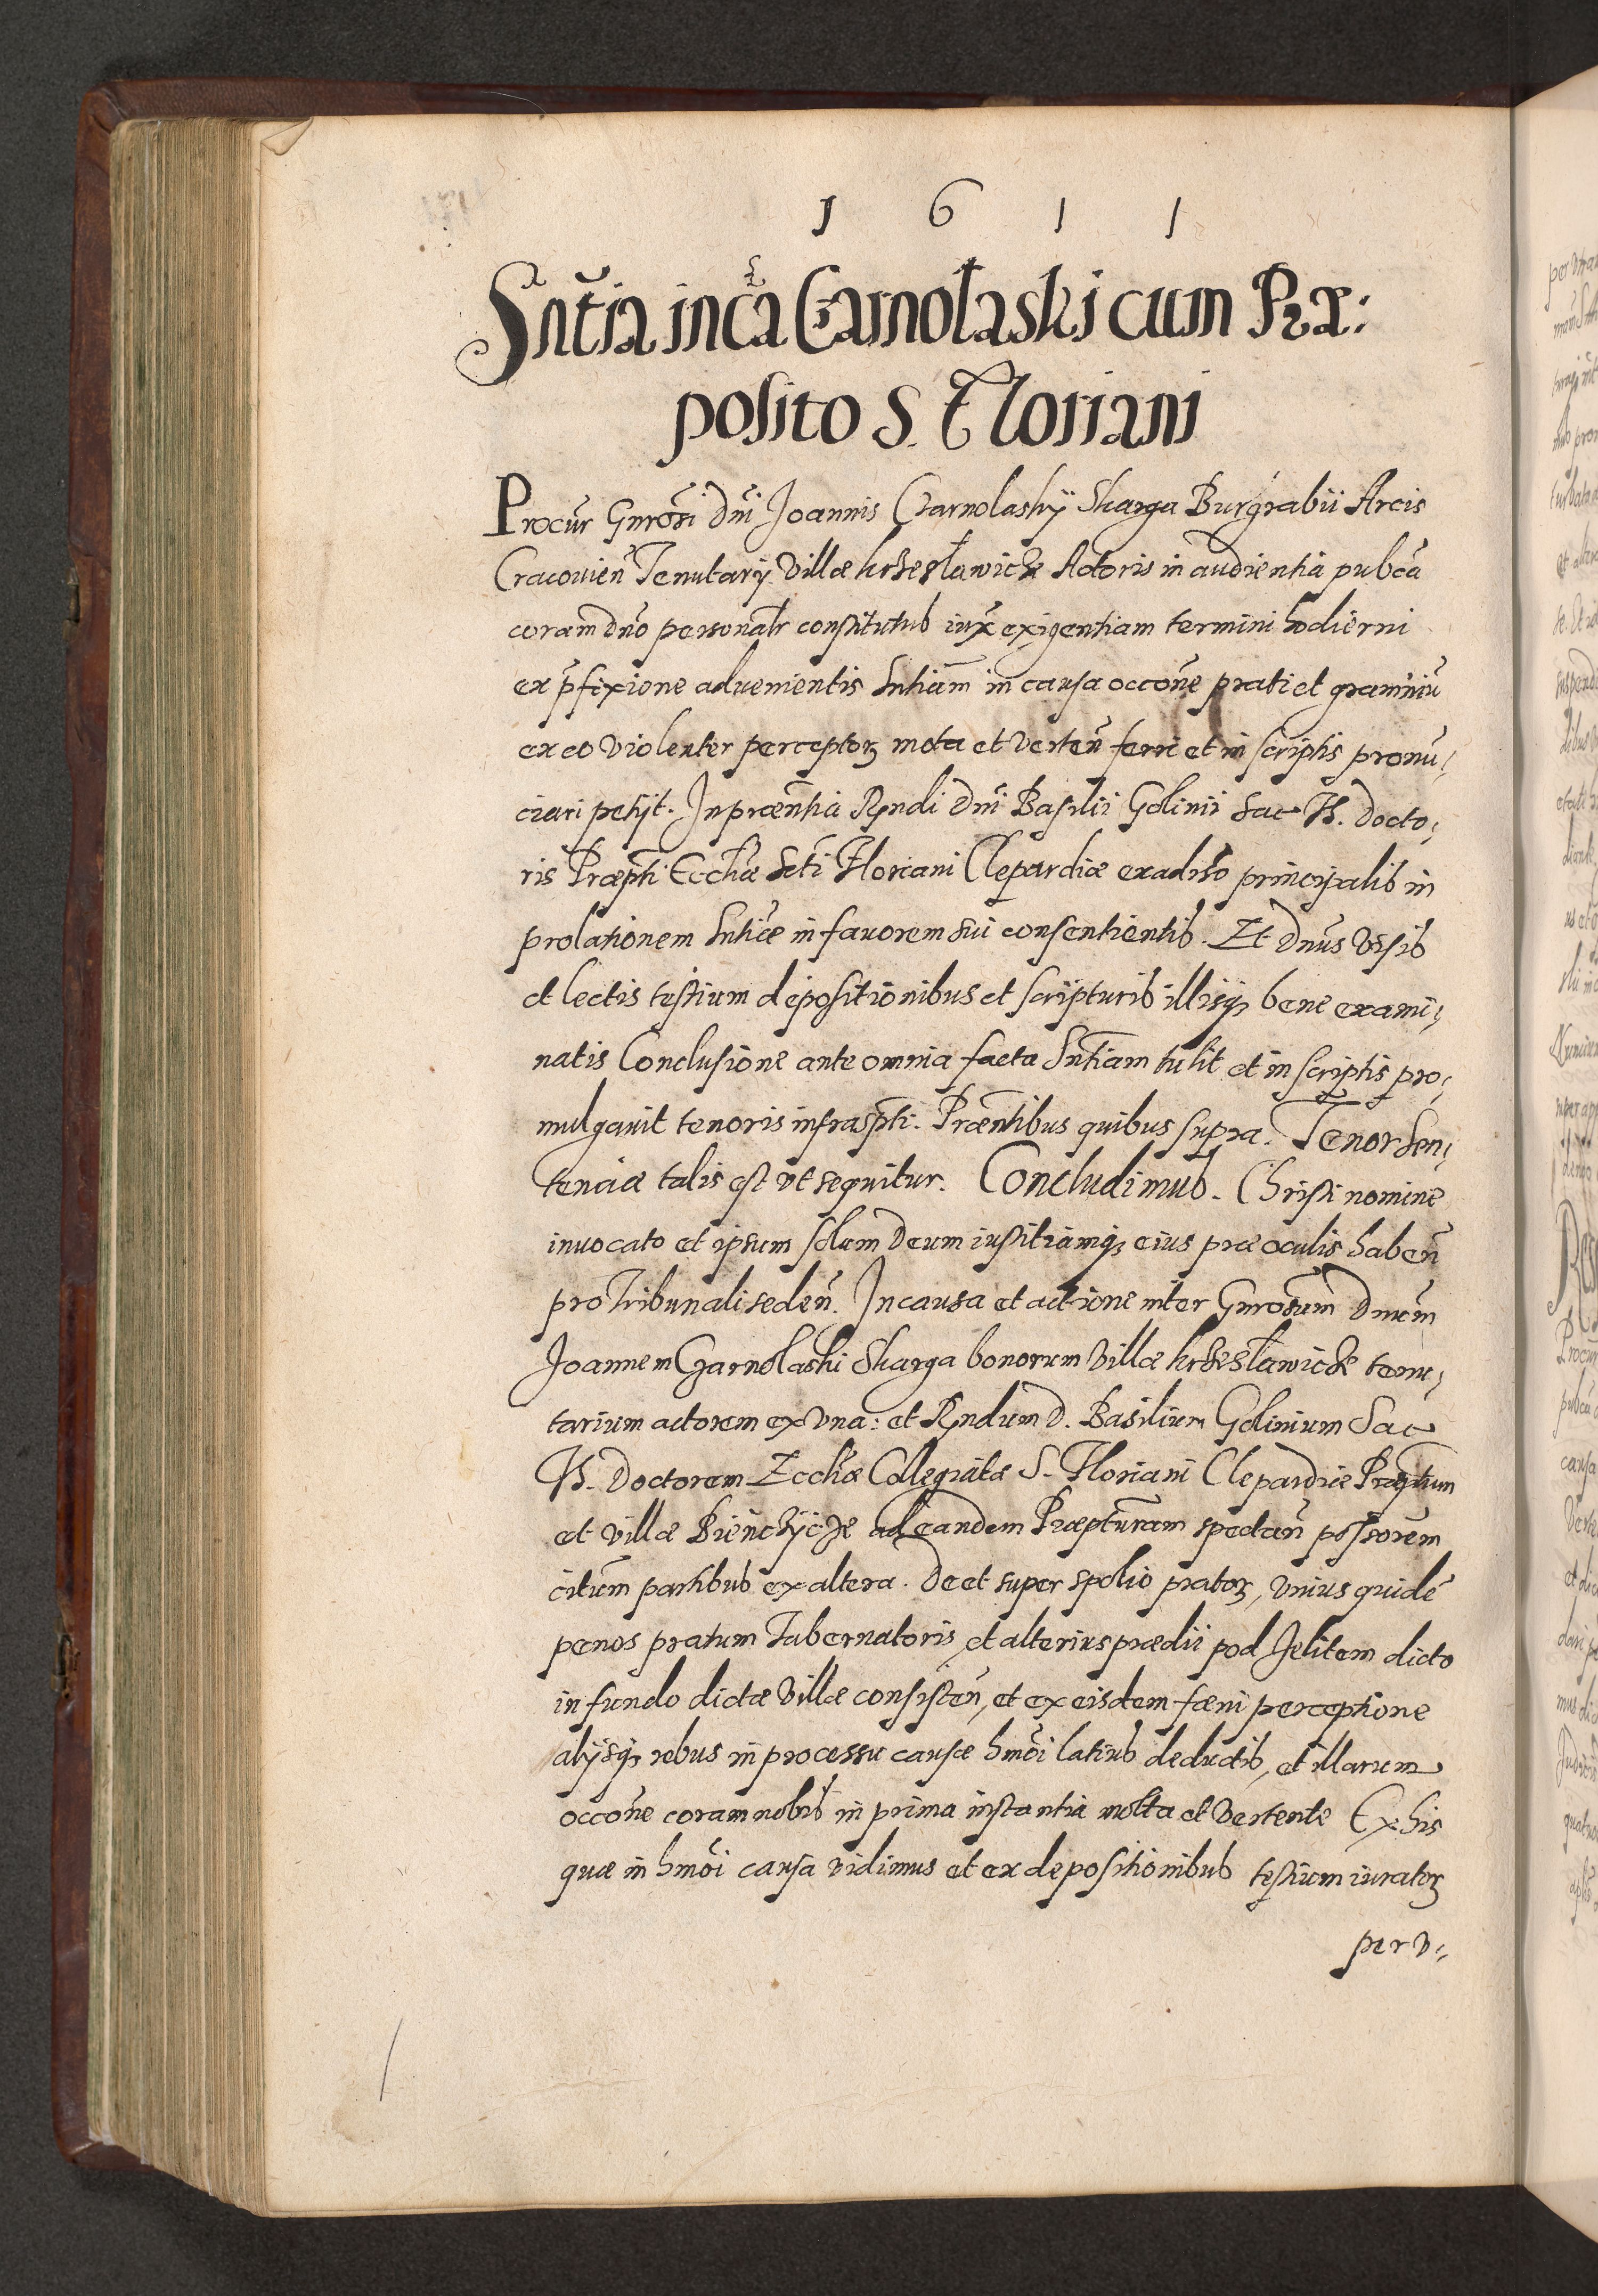 1 6 1 1
Sntia in cā Czarnolaski cum Præ:
posito S. Floriani
Procūr Gnrosi Dni Joannis Czarnolaskÿ Skarga Burgrabii Arcis
Cracouien Tenutarÿ Villæ krzesławicze Actoris in audientia pubca
coram Dno personalr constitutus iux exigentiam termini hodierni
ex pfixione aduenientis Sntiam in causa occone prati et graminū
ex eo violenter perceptoꝝ mota et verten ferri et in scriptis pronū,
ciari petÿt. In præntia Rndi Dni Basilii Golinii Sac Th. Docto,
ris Præpti Ecchæ Scti Floriani Clepardiæ ex adiso principalis in
prolationem Sntiæ in fauorem sui consentientis. Et Dnus visis
et lectis testium depositionibus et scripturis illisqꝫ bene exami,
natis Conclusione ante omnia facta Sntiam tulit et in scriptis pro,
mulgauit tenoris infraspti. Præntibus quibus supra. Tenor Sen,
tenciæ talis est vt sequitur. Concludimus. Christi nomine
inuocato et ipsum solum Deum iustitiamqꝫ eius præ oculis haben
pro Tribunali seden. In causa et actione inter Gnrosum Dnum
Joannem Czarnolaski Skarga bonorum Villæ krzesławicze tenu,
tarium actorem ex vna: et Rndum D. Basilium Golinium Sac
Th. Doctorem Ecchæ Collegiatæ S. Floriani Clepardiæ Præptum
et villæ Bieńczÿcze ad eandem Præpturam spectan possorem
citum partibus ex altera. De et super spolio pratoꝝ, vnius quidē
penes pratum Tabernatoris, et alterius prædii pod Jelitem dicto
in fundo dictæ Villæ consisten, et ex eisdem fœni perceptione
alÿsqꝫ rebus in processu causæ hmoi latius deductis, et illarum
occone coram nobis in prima instantia mota et vertente Ex his
quæ in hmoi causa vidimus et ex depositionibus testium iuratoꝝ
per v,